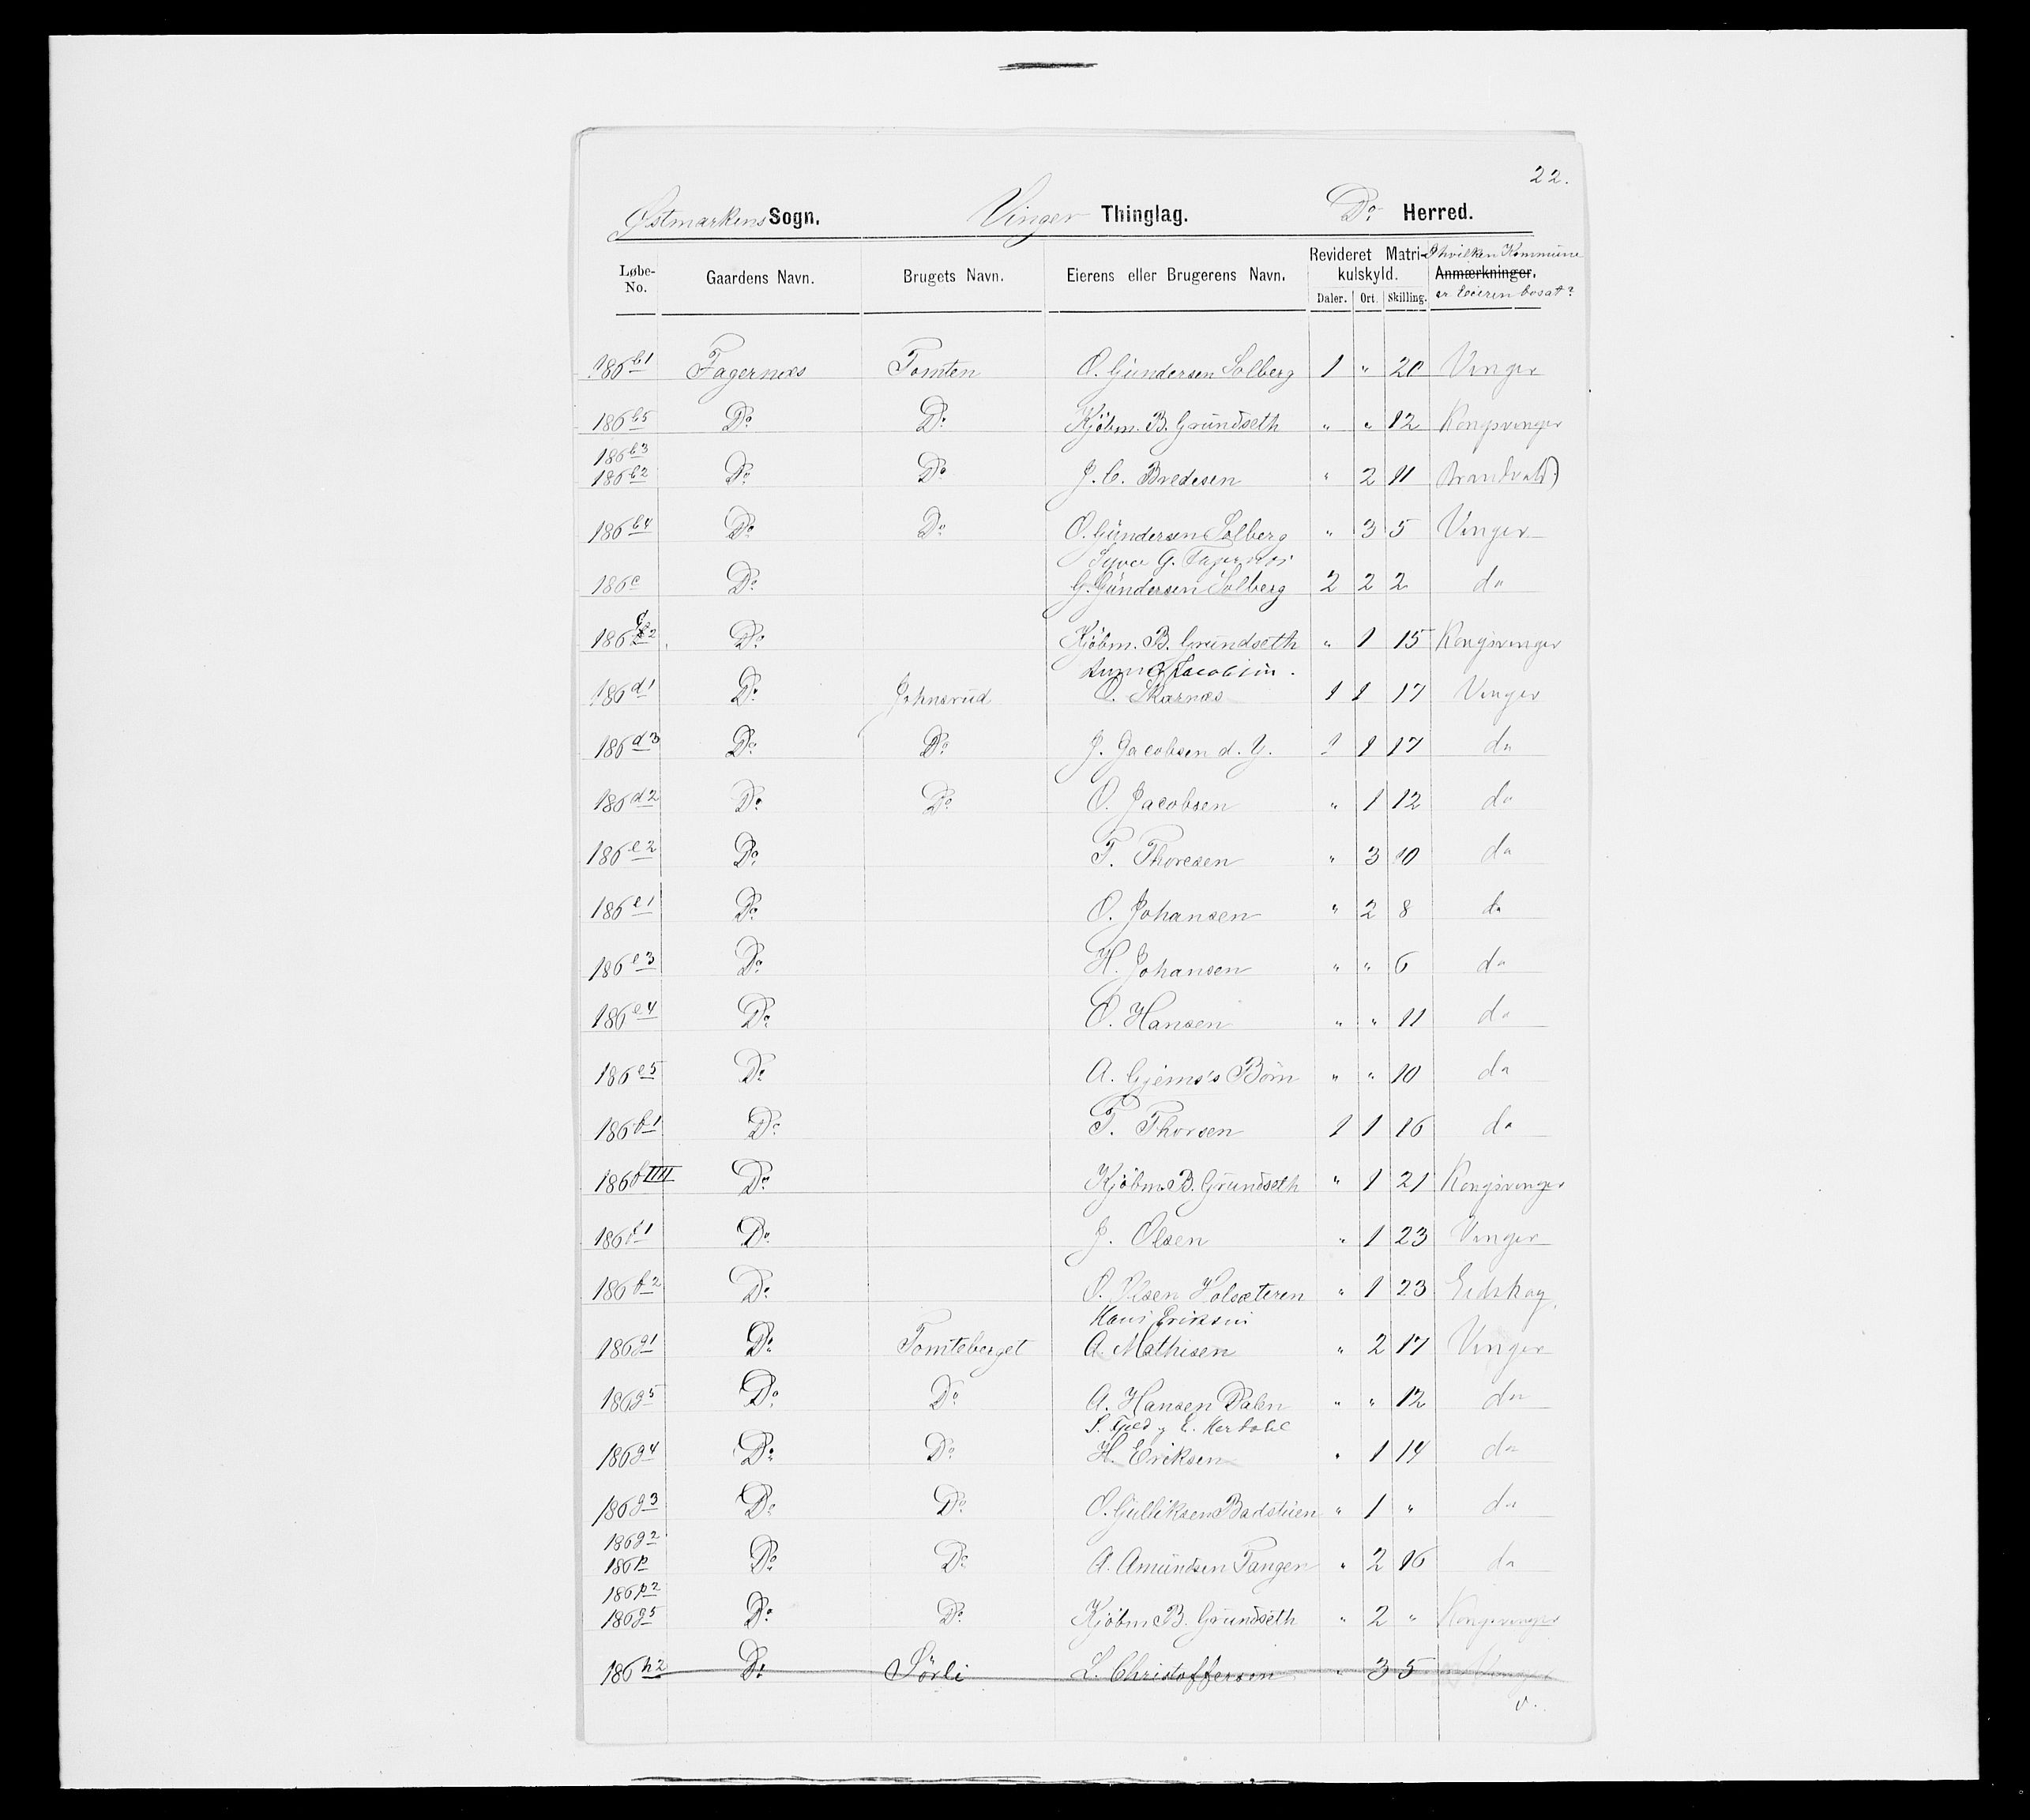 22.
Østmarkens Sogn. Vinger Thinglag. Do Herred.
Løbe-No. Gaardens Navn. Brugets Navn. Eierens eller Brugerens Navn. Revideret Matrikulskyld. Daler. Ort. Skilling. Anmærkninger. I hvilken Kommune er Eieren bosat?
186 b1 Fagernæs Tomten O. Gundersen Solberg 1 " 20 Vinger
186 b5 Do Do Kjøbm. B. Grundseth " " 12 Kongsvinger
186 b3
186 b2 Do Do J. C. Bredesen " 2 11 Brandvold
186 b4 Do Do O. Gundersen Solberg " 3 5 Vinger
Syver G. Fagernæs
186 c Do G. Gundersen Solberg 2 2 2 do
186 c2 Do Kjøbm. B. Grundseth " 1 15 Kongsvinger
Jacobsen.
186 d1 Do Johnsrud O. Skarnæs 1 1 17 Vinger
186 d3 Do Do J. Jacobsen d. Y. 1 1 17 do
186 d2 Do Do O. Jacobsen " 1 12 do
186 e2 Do T. Thoresen " 3 10 do
186 e1 Do O. Johansen " 2 8 do
186 e3 Do H. Johansen " " 6 do
186 e4 Do O. Hansen " " 11 do
186 e5 Do A. Gjems's Børn " " 10 do
186 f1 Do T. Thorsen 1 1 16 do
186 f IIII Do Kjøbm. B. Grundseth " 1 21 Kongsvinger
186 f1 Do J. Olsen " 1 23 Vinger
186 f2 Do O. Olsen Holsæteren " 1 23 Eidskog
Hans Eriksen
186 g1 Do Tomteberget A. Mathisen " 2 17 Vinger
186 g5 Do Do A. Hansen Dalen " " 12 do
186 g4 Do Do H. Eriksen " 1 14 do
186 g3 Do Do O. Gulliksen Badstuen " 1 " do
186 g2
186 p Do Do A. Amundsen Tangen " 2 16 do
186 p2
186 g5 Do Do Kjøbm. B. Grundseth " 2 " Kongsvinger
186 h2 Do Sörli L. Christoffersen " 3 5 Vinger
v.